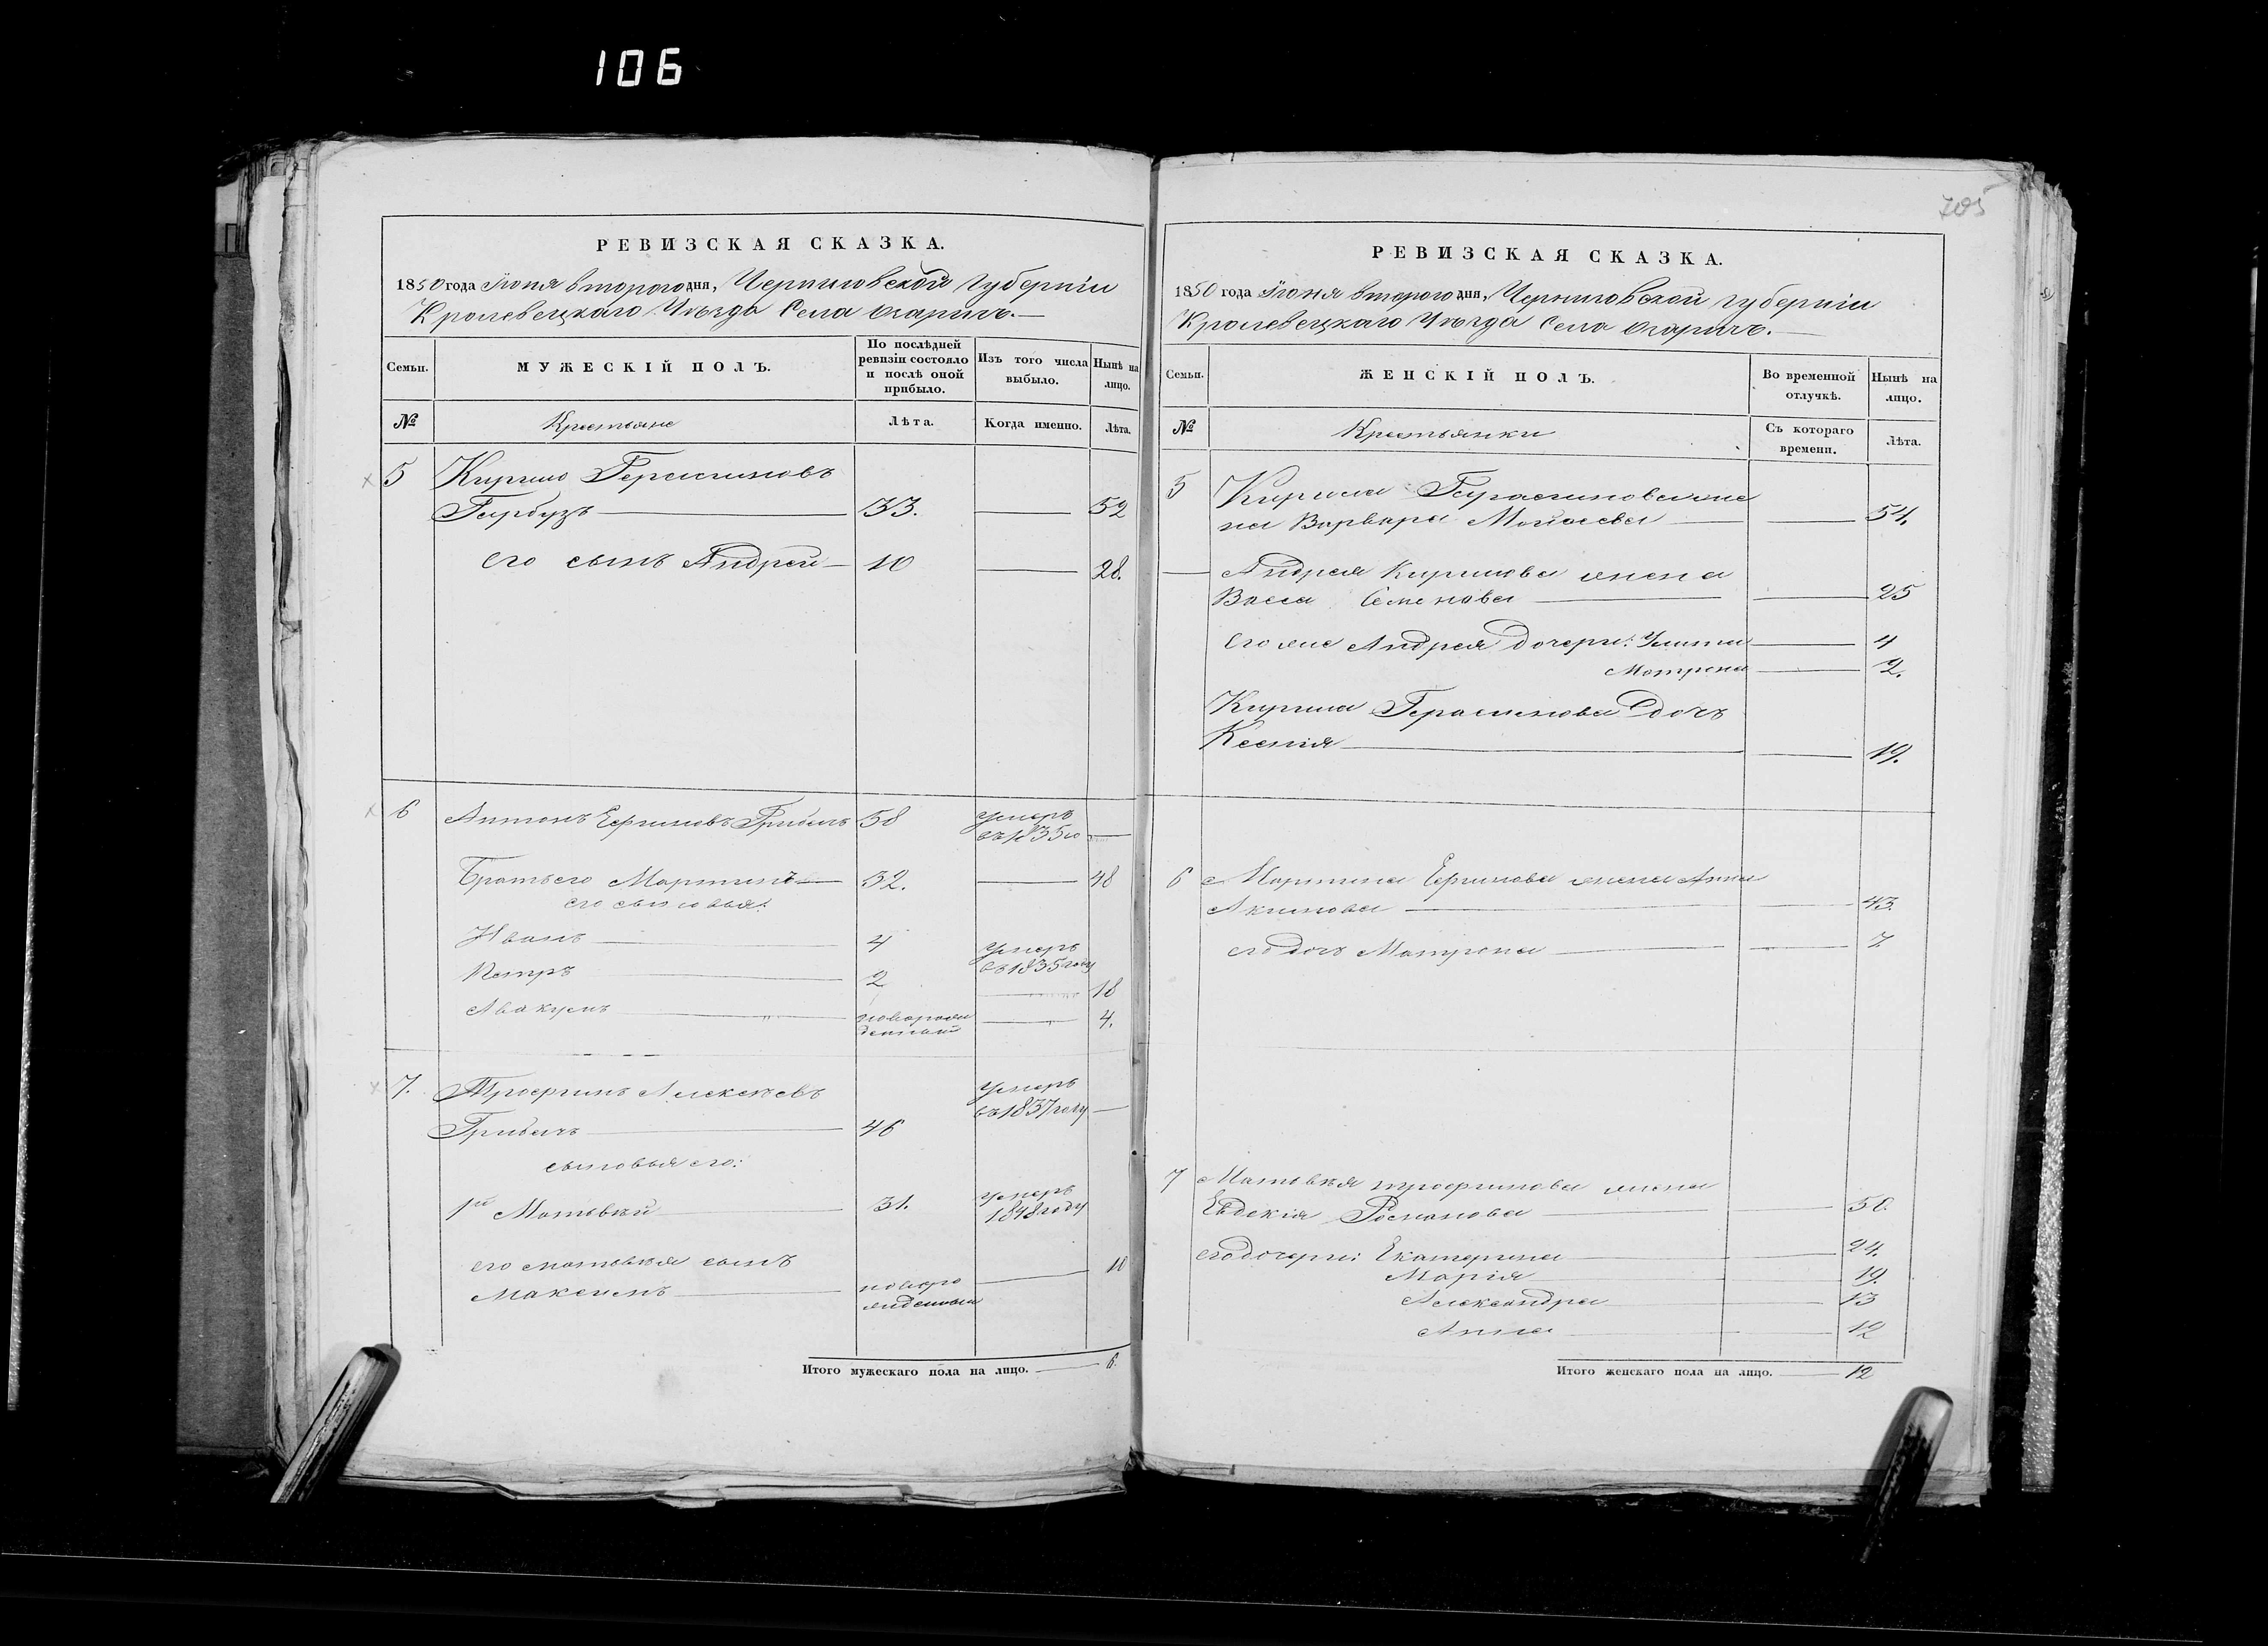 106
705
РЕВИЗСКАЯ СКАЗКА.
1850 года Іюня второго дня, Черниговской Губерніи
Кролевецкаго Уѣзда Села
Семьи. МУЖЕСКІЙ ПОЛЪ. По послѣдней ревизіи состояло и послѣ оной прибыло. Изъ того числа выбыло. Нынѣ на лицо.
№ Крестьяне Лѣта. Когда именно. Лѣта.
5 Кирило Герасимовъ
Гарбузъ 33. 52
его сынъ Андрей 10 28.
6 Антонъ Ефимовъ 58 умеръ
въ 1835 го
Братъ его Мартинъ 32. 48
его сыновья:
Иванъ 4 умеръ
въ 1835 году
Петръ 2 18
Авакумъ новорож
денный 4.
7. Трофимъ Алексѣевъ умеръ
въ 1837 году
46
сыновья его:
1й Матвѣй 31. умеръ
1848 году
его Матвѣя сынъ 10
Максимъ новоро
жденный
Итого мужескаго пола на лицо. 6.
РЕВИЗСКАЯ СКАЗКА.
1850 года Іюня второго дня, Черниговской губерніи
Кролевецкаго Уѣзда Села
Семьи. ЖЕНСКІЙ ПОЛЪ. Во временной отлучкѣ. Нынѣ на лицо.
№ Крестьянки Съ котораго времени. Лѣта.
5 Кирила Герасимова же
на Варвара Моисеева 54.
Андрея Кирилова жена
Васса Семенова 25
его же Андрея дочери: Улита 4
Матрона 2.
Кирила Герасимова дочъ
Ксенія 19.
6 Мартина Ефимова жена Анна
Акимова 43.
его дочъ Матрона 7
7 Матвѣя Трофимова жена
Евдокія Романова 50.
его дочери: Екатерина 24.
Марія 19.
Александра 13
Анна 12
Итого женскаго пола на лицо. 12